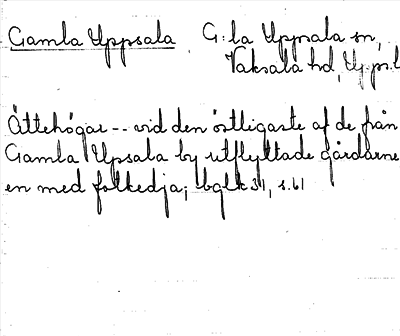 Gamla Uppsala G:la Uppsala sn,
Vaksala hd, Upps.l
Ättehögar -- vid den östligaste af de från
Gamla Upsala by utflyttade gårdarne
en med fotkedja; bglk 31, s.61